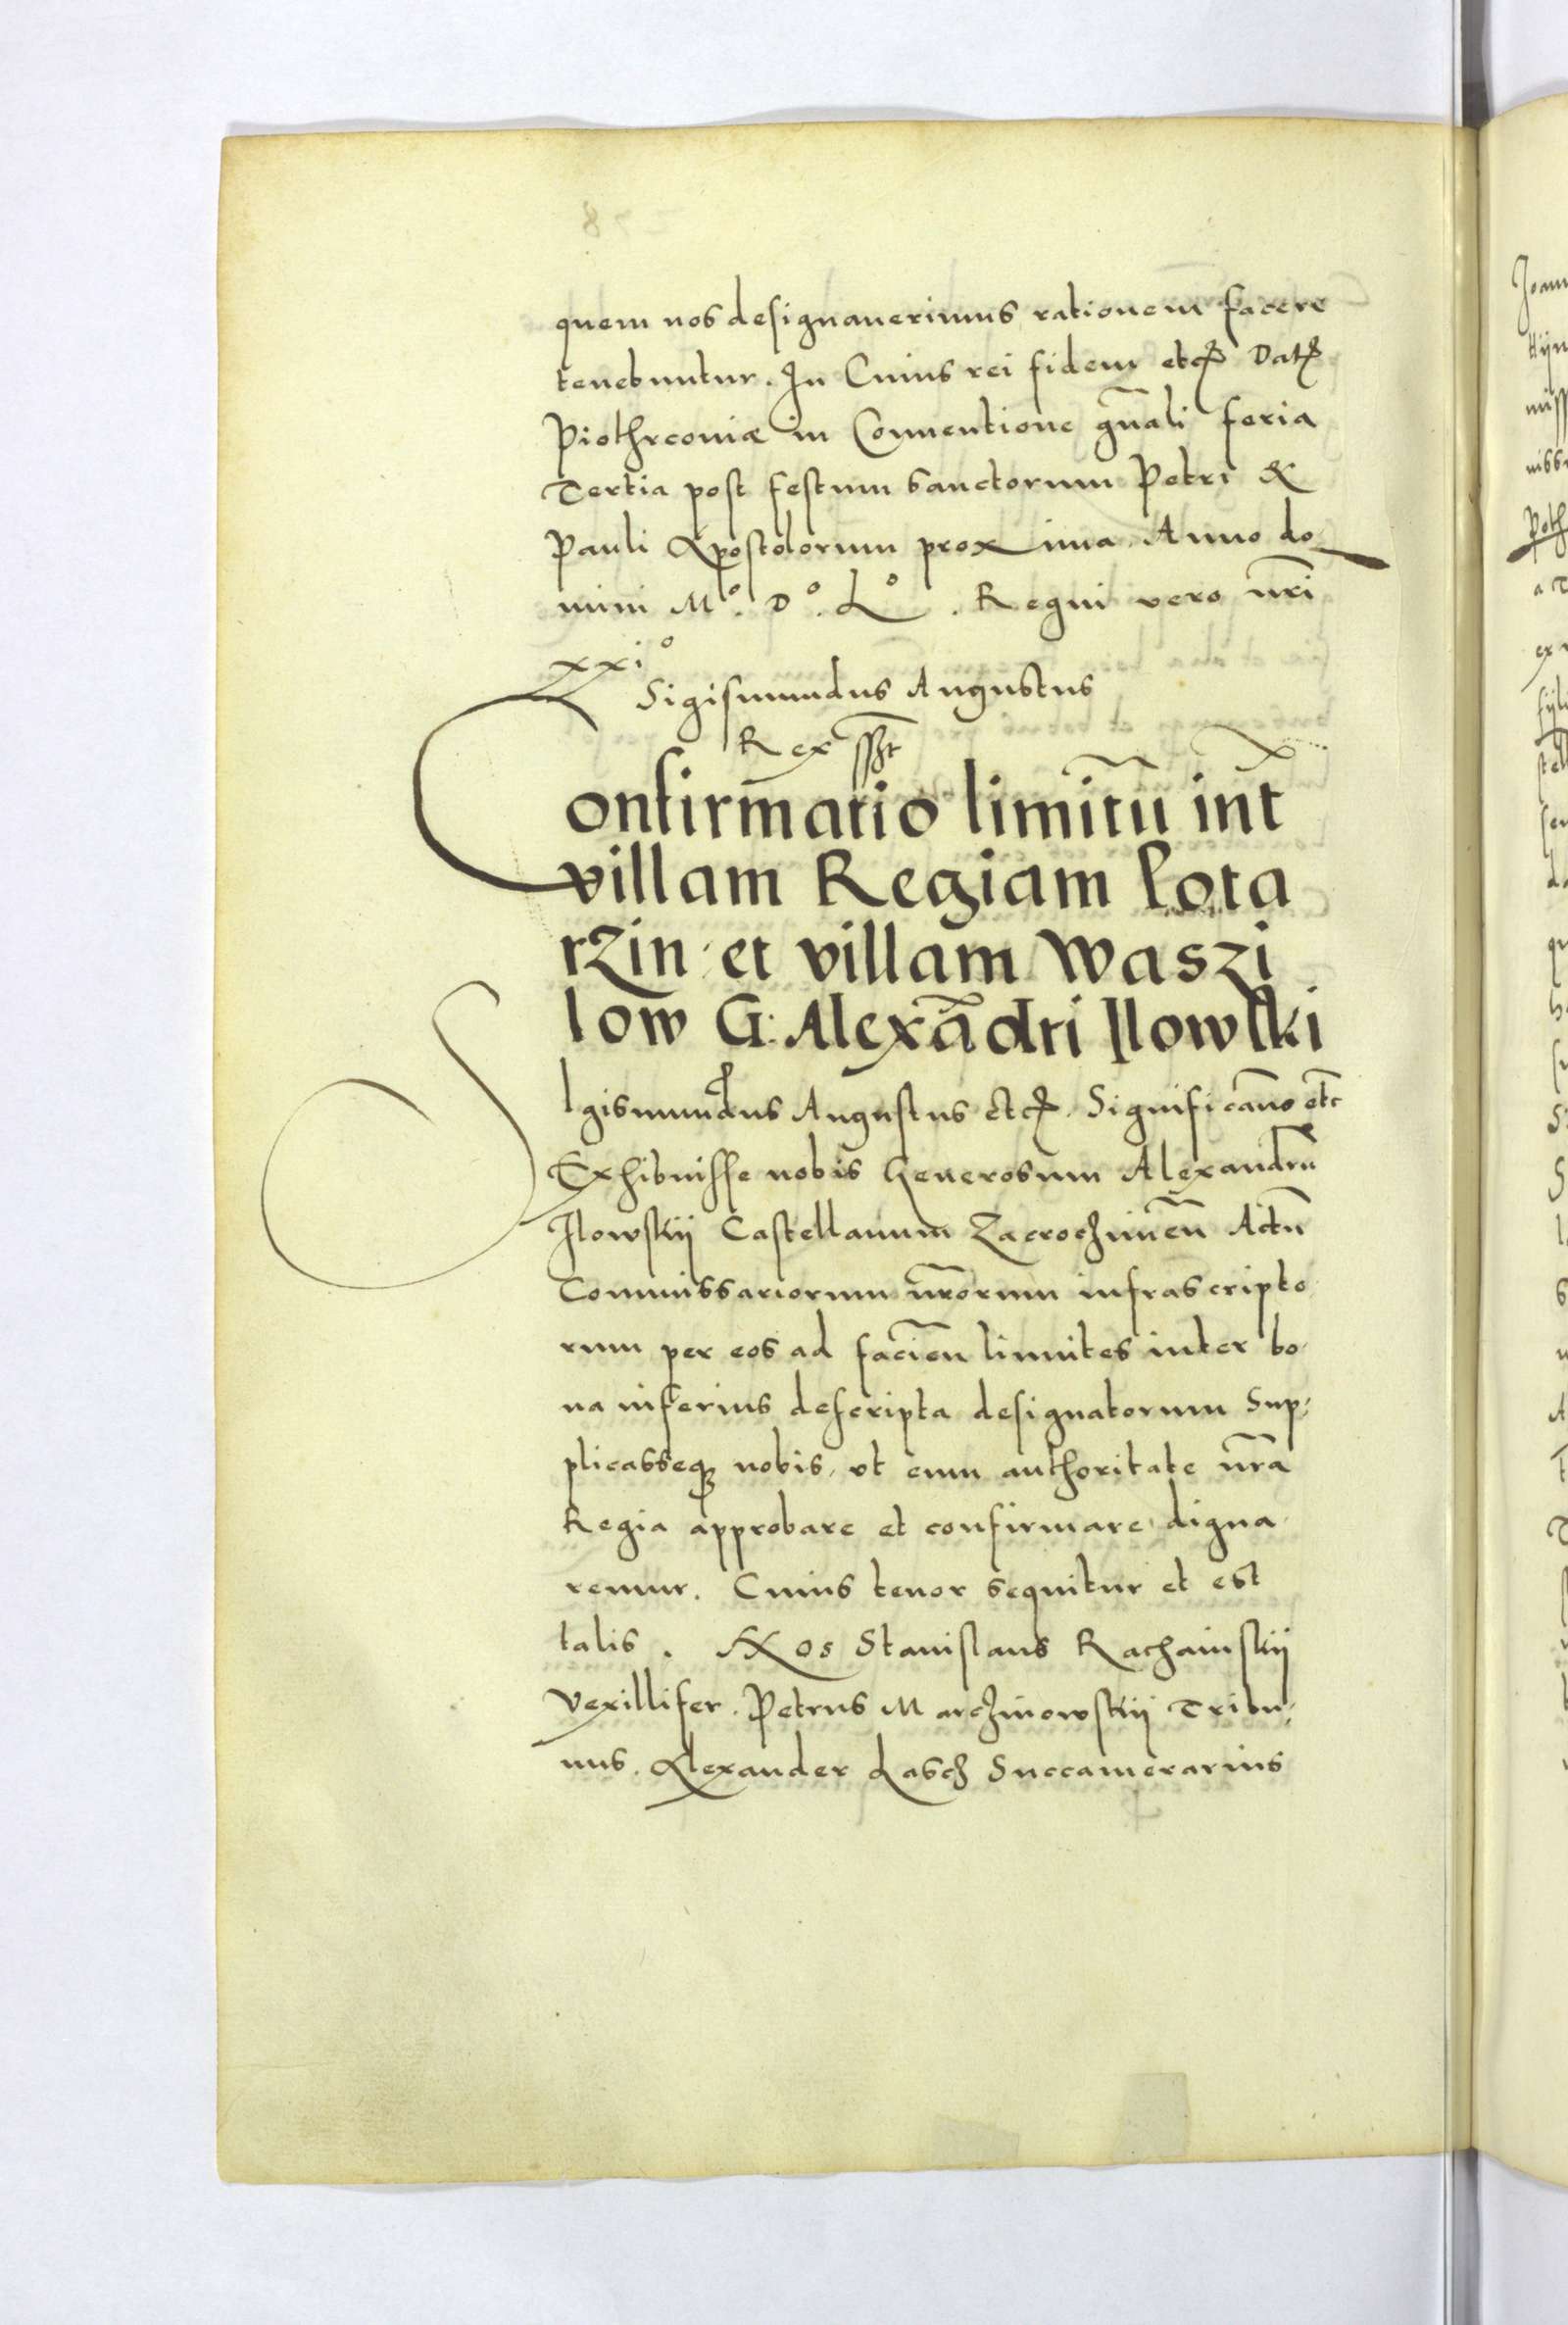 quem nos designauerimus rationem facere
tenebuntur. In Cuius rei fidem etc Dat
Piothrconiæ in Conuentione gnali feria
Tertia post festum Sanctorum Petri &
Pauli Apostolorum proxima. Anno do
mini Mº. Dº. Lº. Regni vero nri
xxiº
Sigismundus Augustus
Rex sst
Confirmatio limitu int
villam Regiam Lota
rzin et villam Waszi
low G. Alexadri Ilowski
SIgismundus Augustus etc. Significamo etc
Exhibuisse nobis Generosum Alexandru
Ilowskij Castellanum Zacrochimen Actu
Commissariorum nrorum infrascripto
rum per eos ad facien limites inter bo
na inferius descripta designatorum Sup
plicasseq nobis, vt eum authoritate nra
Regia approbare et confirmare digna
remur. Cuius tenor sequitur et est
talis. Nos Stanislaus Rachainskij
Vexillifer. Petrus Marchinowskij Tribu
nus. Alexander Lasch Succamerarius